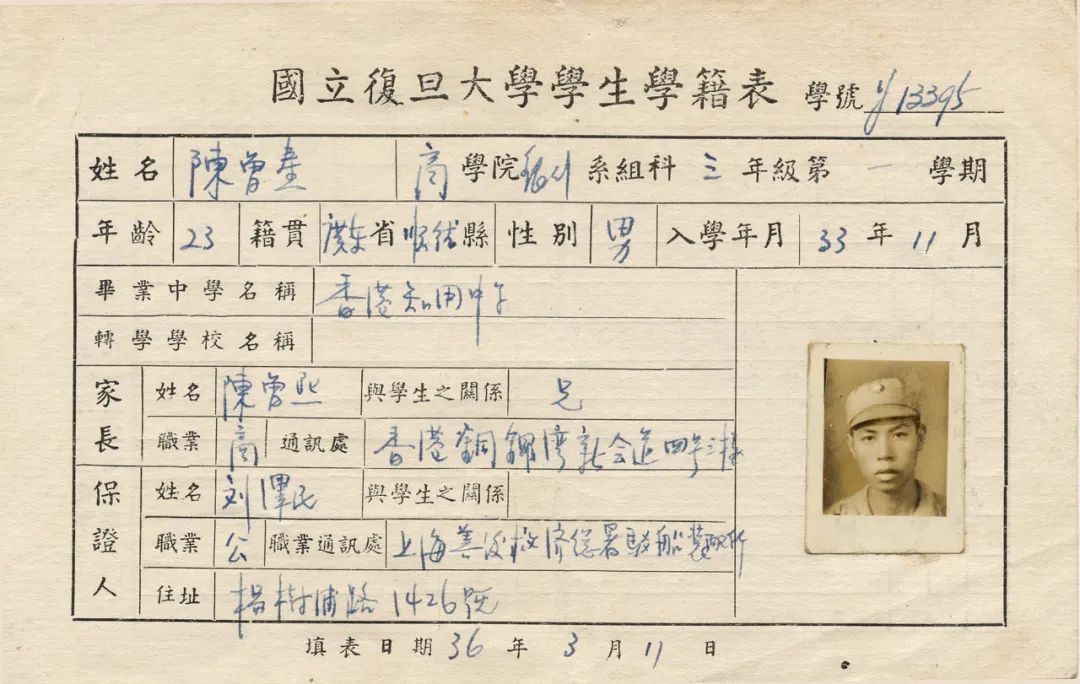 國立復旦大學學生學籍表 學號 y13395
姓名 陳曾燾 商 學院 銀行 系組科 三 年級第 一 學期
年齡 23 籍貫 廣东 省 順德 縣 性別 男 入學年月 33 年 11 月
畢業中學名稱 香港知用中学
轉學學校名稱
家長 姓名 陳曾熙 與學生之關係 兄
職業 商 通訊處 香港銅鑼灣新会道四号三楼
保證人 姓名 刘澤民 與學生之關係
職業 公 職業通訊處 上海善後救济總署駁船裝配所
住址 楊树浦路1426號
填表日期 36 年 3 月 11 日